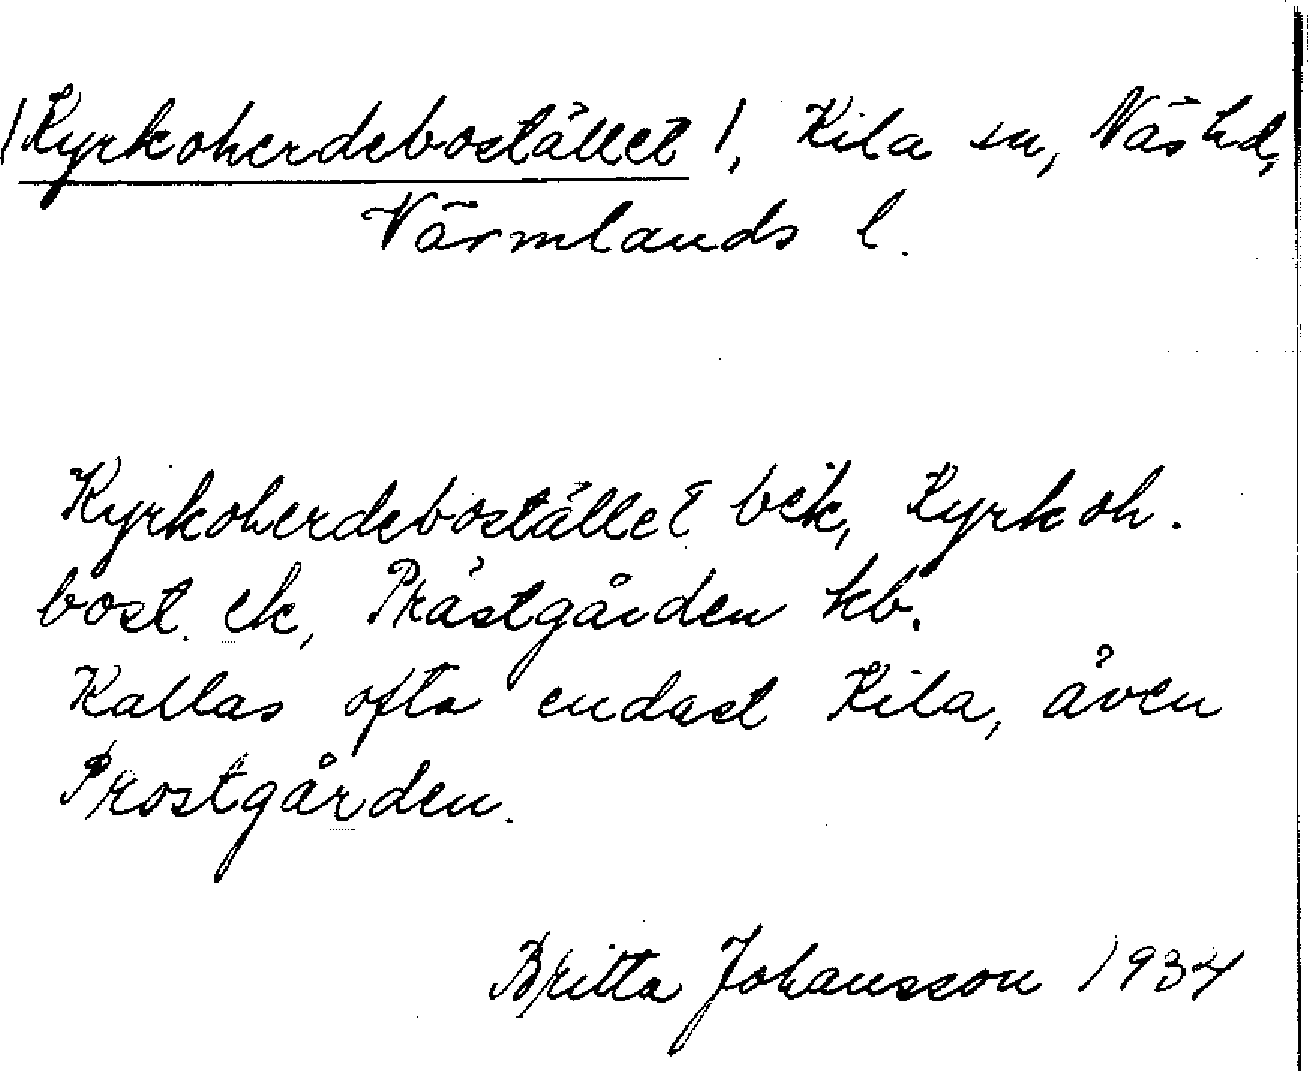 /Kyrkoherdebostället/, Kila sn, Näs hd,
Värmlands l.
Kyrkoherdebostället bek, Kyrkoh.
bost. ek, Prästgården kb.
Kallas ofta endast Kila, även
Prostgården.
Britta Johansson 1934